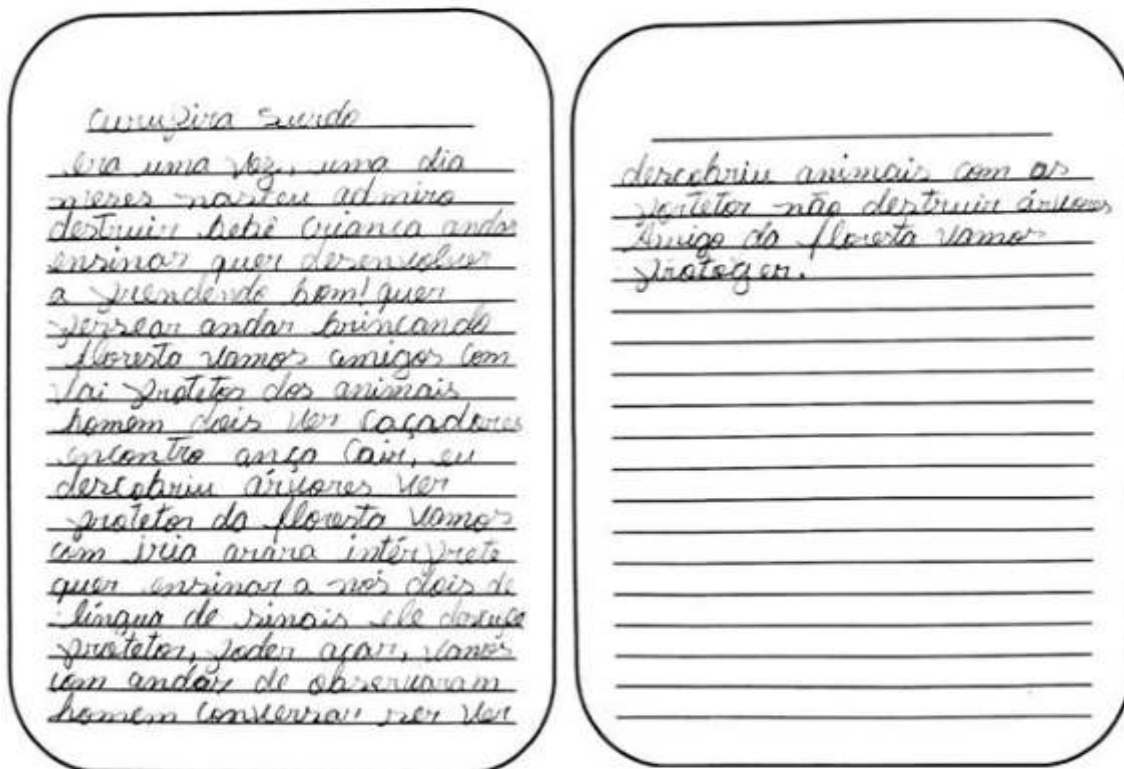 Curupira Surdo
Era uma vez, uma dia
nasceu admiro
destruir bebê criança andar
ensinar quer desenvolver
a prendendo bom! quer
andar brincando
floresta vamos amigos com
vai protetor dos animais
homem dois ver caçadores
encontro cair, eu
descobriu árvores ver
protetor da floresta vamos
com arara intérprete
quer ensinar a nós dois de
língua de sinais ele
protetor, poder açar, vamos
com andar de observaram
homem conversar ser ver
descobriu animais com os
portetor não destruir árvores
Amigo da floresta vamos
protoger.